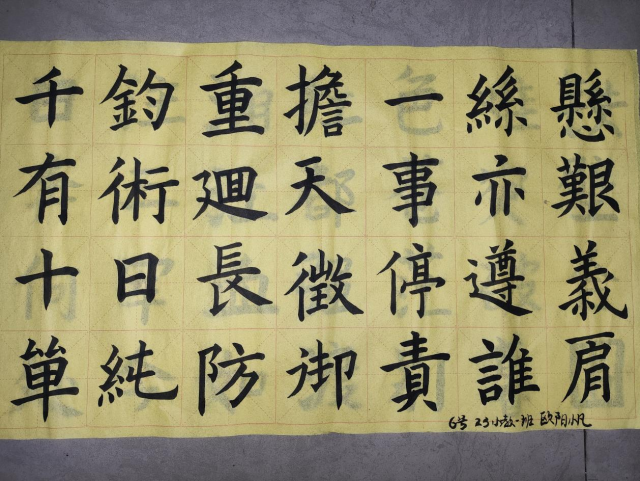 千鈞重擔一絲懸
有術廻天事亦艱
十日長徵停遵義
單純防御責誰肩
6号 23小教一班 欧阳帆